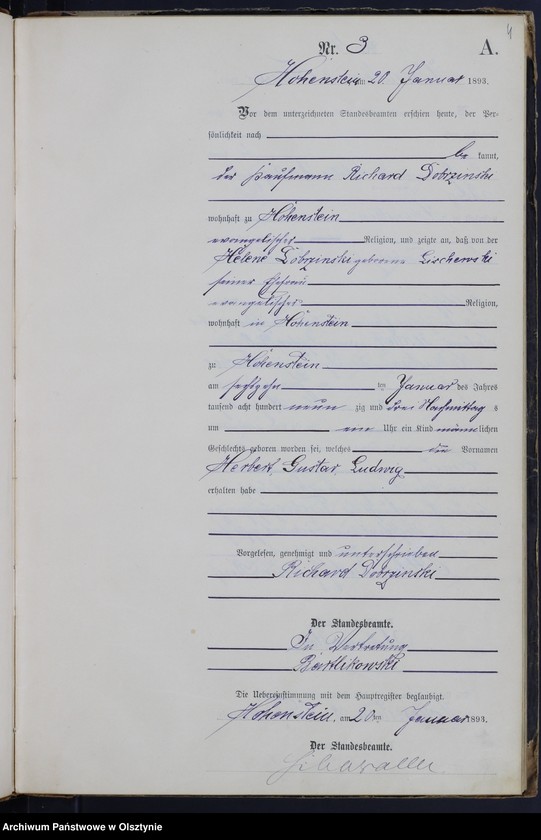 4
Nr. 3 A.
Hohenstein am 20. Januar 1893.
Vor dem unterzeichneten Standesbeamten erschien heute, der Per-
sönlichkeit nach
be kannt,
der Kaufmann Richard Dobrzinski
wohnhaft zu Hohenstein
evangelischer Religion, und zeigte an, daß von der
Helene Dobrzinski geborene Lischewski
seiner Ehefrau
evangelischer Religion,
wohnhaft in Hohenstein
zu Hohenstein
am sechszehn ten Januar des Jahres
tausend acht hundert neun zig und drei Nachmittag s
um ein Uhr ein Kind männ lichen
Geschlechts geboren worden sei, welches die Vornamen
Herbert Gustav Ludwig
erhalten habe
Vorgelesen, genehmigt und unterschrieben
Richard Dobrzinski
Der Standesbeamte.
In Vertretung
Bartlikowski
Die Uebereinstimmung mit dem Hauptregister beglaubigt.
Hohenstein, am 20 ten Januar 1893.
Der Standesbeamte.
Archiwum Państwowe w Olsztynie